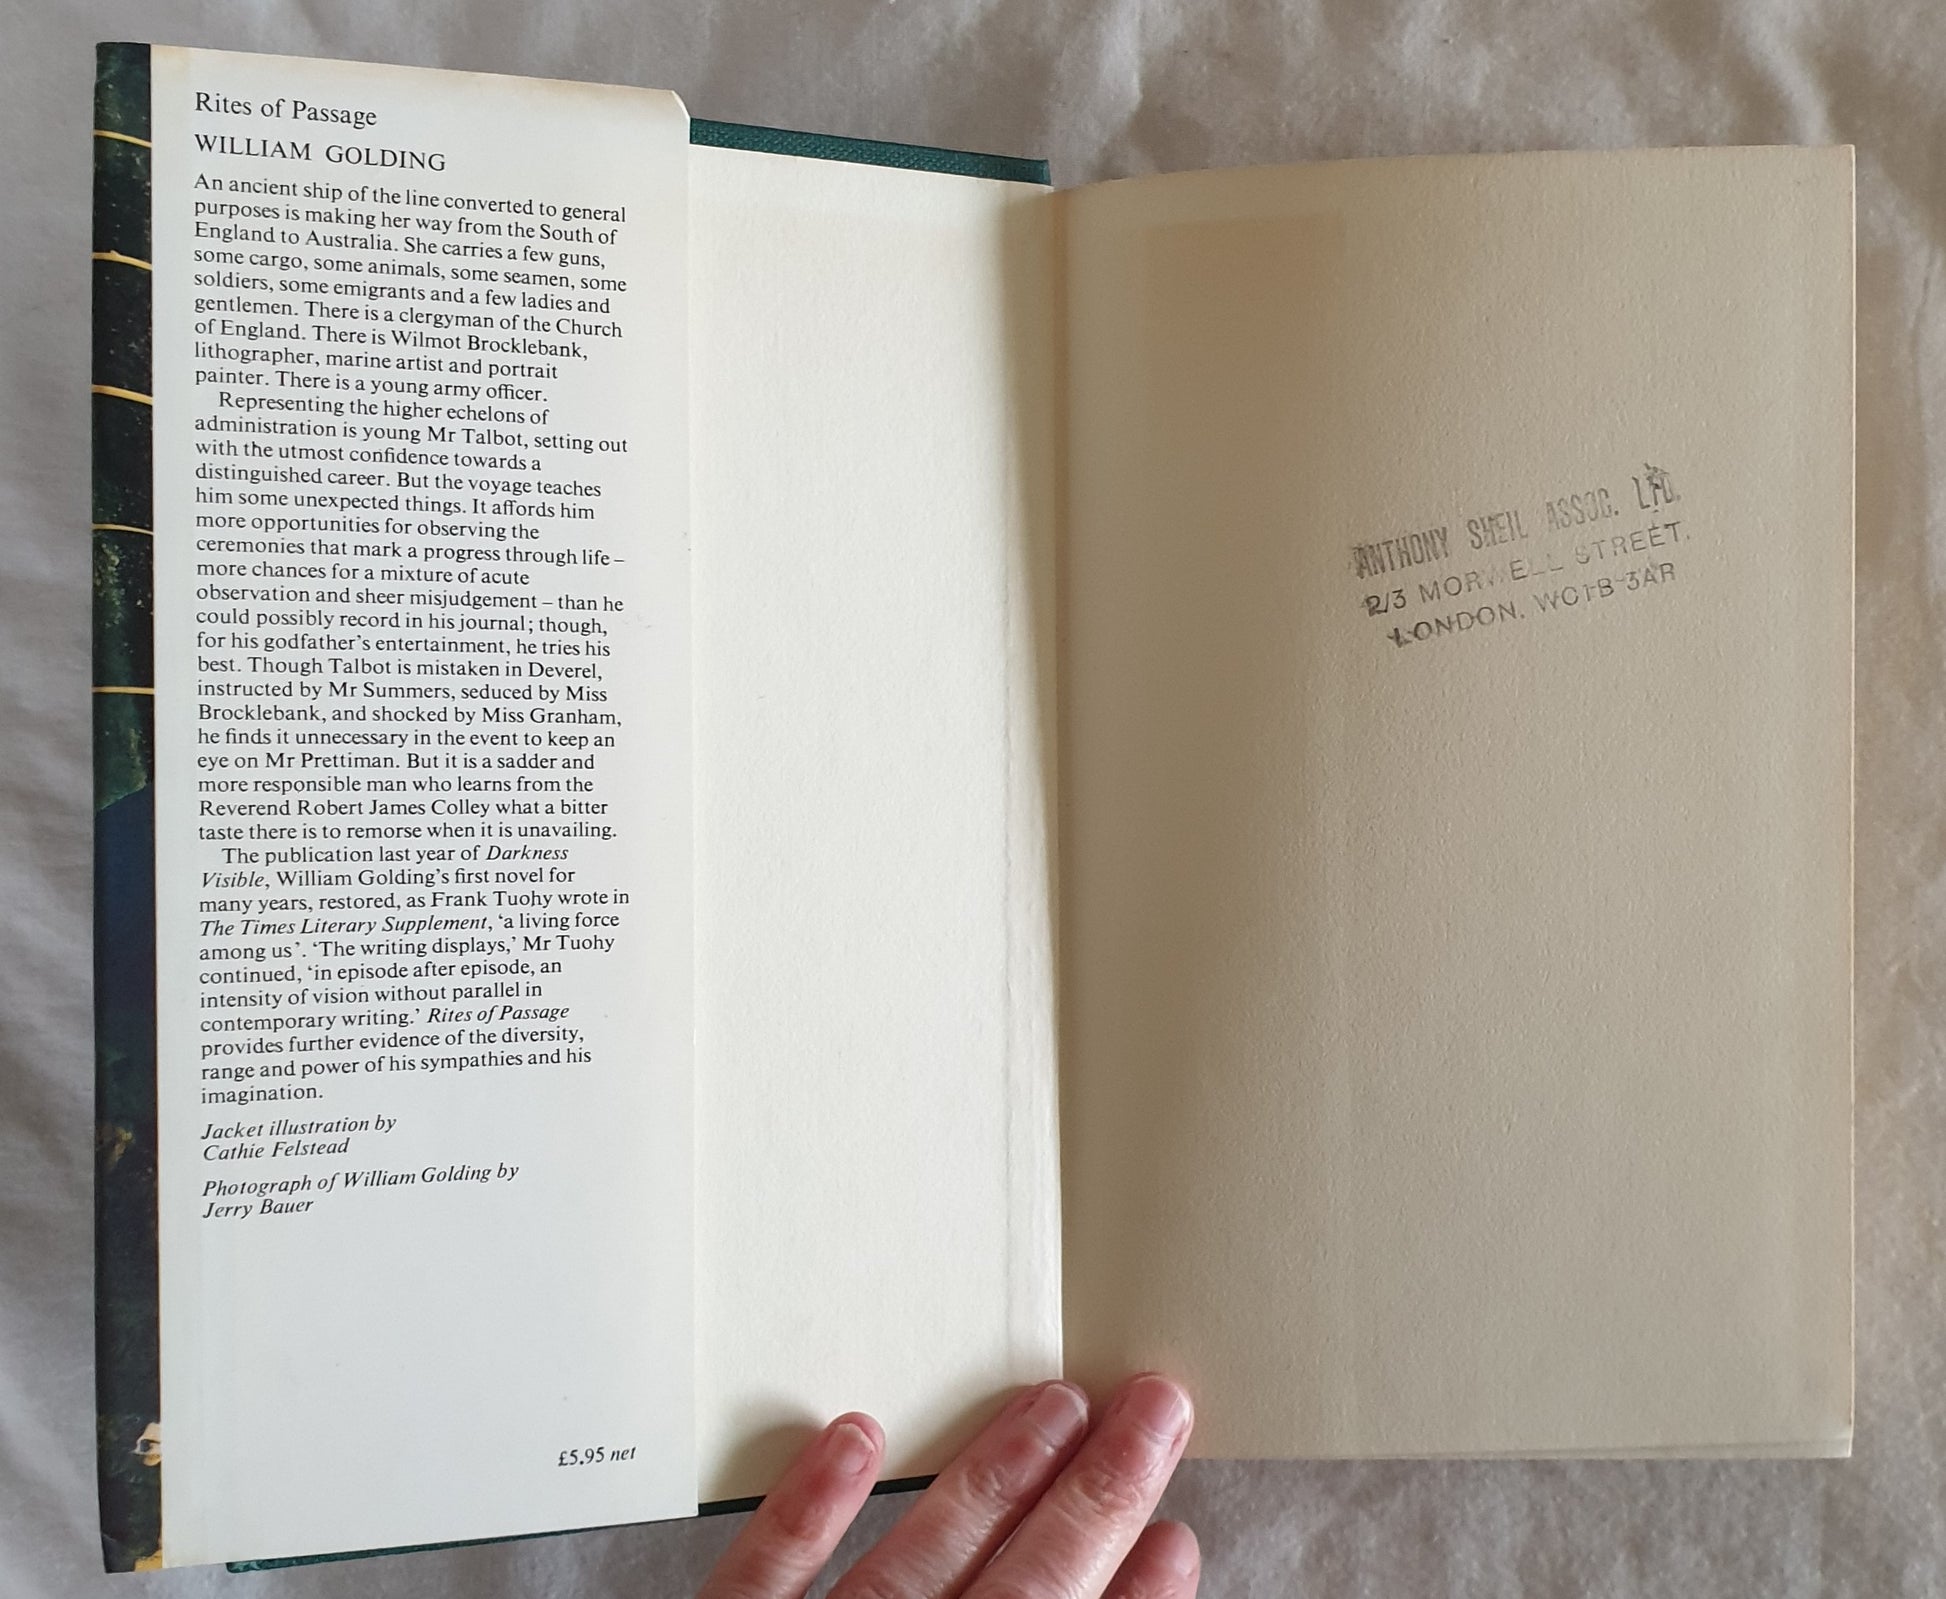 Rites of Passage
WILLIAM GOLDING
An ancient ship of the line converted to general
purposes is making her way from the South of
England to Australia. She carries a few guns,
some cargo, some animals, some seamen, some
soldiers, some emigrants and a few ladies and
gentlemen. There is a clergyman of the Church
of England. There is Wilmot Brocklebank,
lithographer, marine artist and portrait
painter. There is a young army officer.
Representing the higher echelons of
administration is young Mr Talbot, setting out
with the utmost confidence towards a
distinguished career. But the voyage teaches
him some unexpected things. It affords him
more opportunities for observing the
ceremonies that mark a progress through life –
more chances for a mixture of acute
observation and sheer misjudgement – than he
could possibly record in his journal; though,
for his godfather's entertainment, he tries his
best. Though Talbot is mistaken in Deverel,
instructed by Mr Summers, seduced by Miss
Brocklebank, and shocked by Miss Granham,
he finds it unnecessary in the event to keep an
eye on Mr Prettiman. But it is a sadder and
more responsible man who learns from the
Reverend Robert James Colley what a bitter
taste there is to remorse when it is unavailing.
The publication last year of Darkness
Visible, William Golding's first novel for
many years, restored, as Frank Tuohy wrote in
The Times Literary Supplement, ‘a living force
among us’. ‘The writing displays,’ Mr Tuohy
continued, ‘in episode after episode, an
intensity of vision without parallel in
contemporary writing.’ Rites of Passage
provides further evidence of the diversity,
range and power of his sympathies and his
imagination.
Jacket illustration by
Cathie Felstead
Photograph of William Golding by
Jerry Bauer
£5.95 net
ANTHONY SHEIL ASSOC. LTD.
2/3 MORWELL STREET.
LONDON. WC1B-3AR